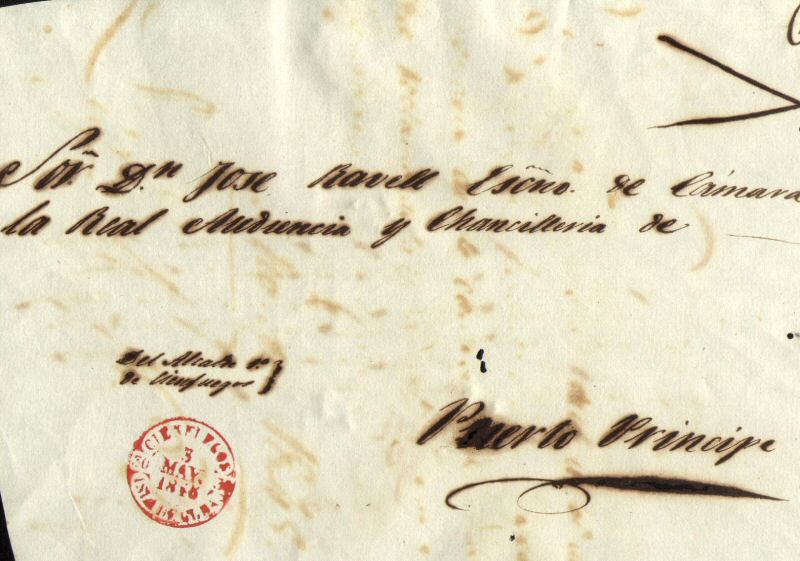 Sor. Dn Jose Ravell Escño. de Cámara
la Real Audiencia y Chancilleria de
Del Alcalde
de Cienfuegos
CIENFUEGOS
3
MAY.
ISLA DE CUBA
Puerto Principe